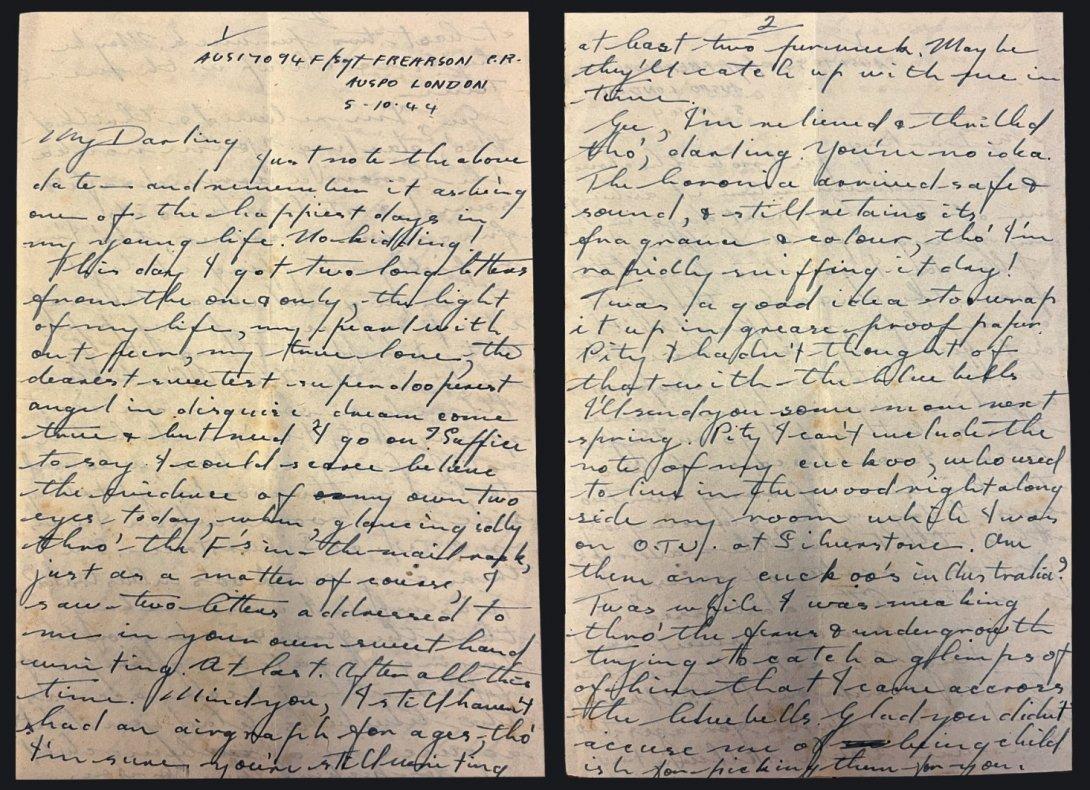 1
AUS17094 F/Sgt FREARSON C.R.
AUSPO LONDON
5-10-44
My Darling
Just note the above
date – and remember it as being
one of the happiest days in
my young life. No kidding!
This day I got two long letters
from the one & only, the light
of my life, my pearl with
out peer, my true love, the
dearest sweetest superdooperest
angel in disguise dream come
true & but need I go on? Suffice
to say I could scarce believe
the evidence of my own two
eyes today, when, glancing idly
thro' the F's in the mail rack,
just as a matter of course, I
saw two letters addressed to
me in your own sweet hand
writing. At last. After all this
time. Mind you, I still haven't
had an airgraph for ages, tho'
I'm sure you're still writing
2
at least two per week. Maybe
they'll catch up with me in
time.
Gee, I'm relieved & thrilled
tho', darling. You've no idea.
The boronia arrived safe &
sound, & still retains its
fragrance & colour, tho' I'm
rapidly sniffing it dry!
Twas a good idea to wrap
it up in grease-proof paper.
Pity I hadn't thought of
that with the blue bells
I'll send you some more next
spring. Pity I can't include the
note of my cuckoo, who used
to live in the wood right along
side my room which I was
on O.T.U. at Silverstone. Are
there any cuckoo's in Australia?
Twas while I was sneaking
thro' the ferns & undergrowth
trying to catch a glimpse of
of him that I came accross
the bluebells. Glad you didn't
accuse me of being child
ish for picking them for you.